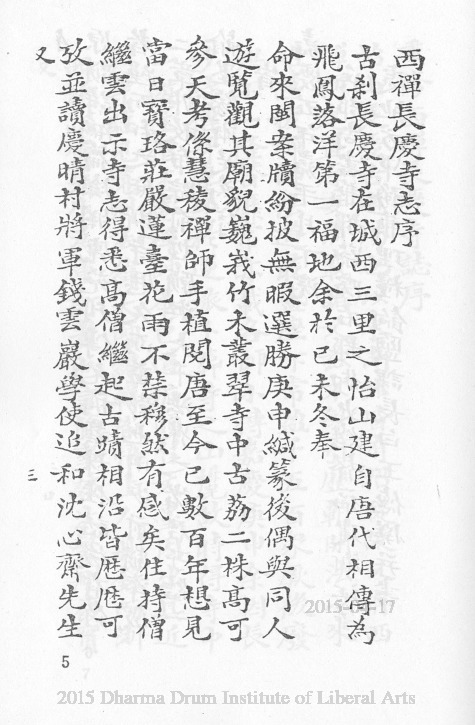 西禪長慶寺志序
古刹長慶寺在城西三里之怡山建自唐代相傳為
飛鳳落洋第一福地余於已未冬奉
命來閩案牘紛披無暇選勝庚申緘篆後偶與同人
遊覽觀其廟貌巍峩竹木叢翠寺中古荔二株高可
參天考係慧稜禪師手植閱唐至今已數百年想見
當日寶珞莊嚴蓮臺花雨不禁穆然有感矣住持僧
繼雲出示寺志得悉高僧繼起古蹟相沿皆歷歷可
攷並讀慶晴村將軍錢雲巖學使追和沈心齋先生
三
5
2015-03-17
2015 Dharma Drum Institute of Liberal Arts